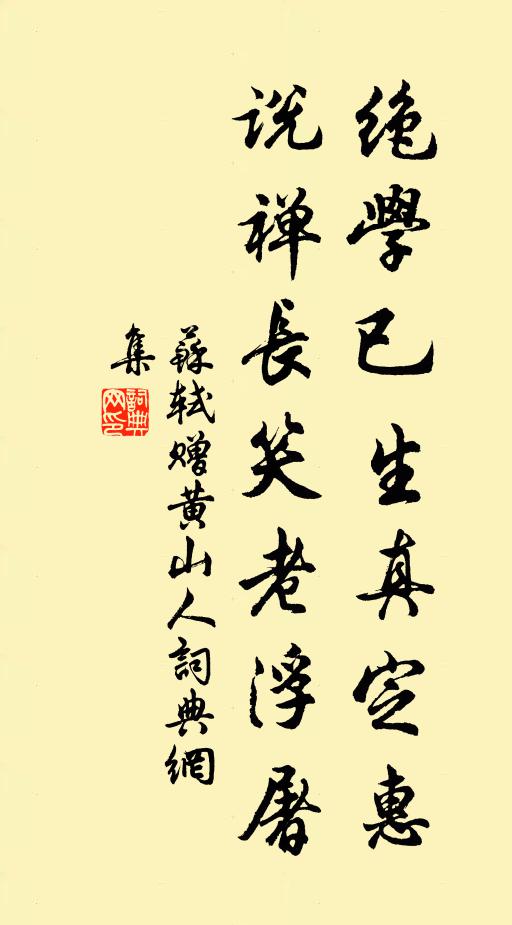 絶學已生真定惠
説禅長笑老浮屠
蘇軾贈黄山人詞典網
集
詞典网印